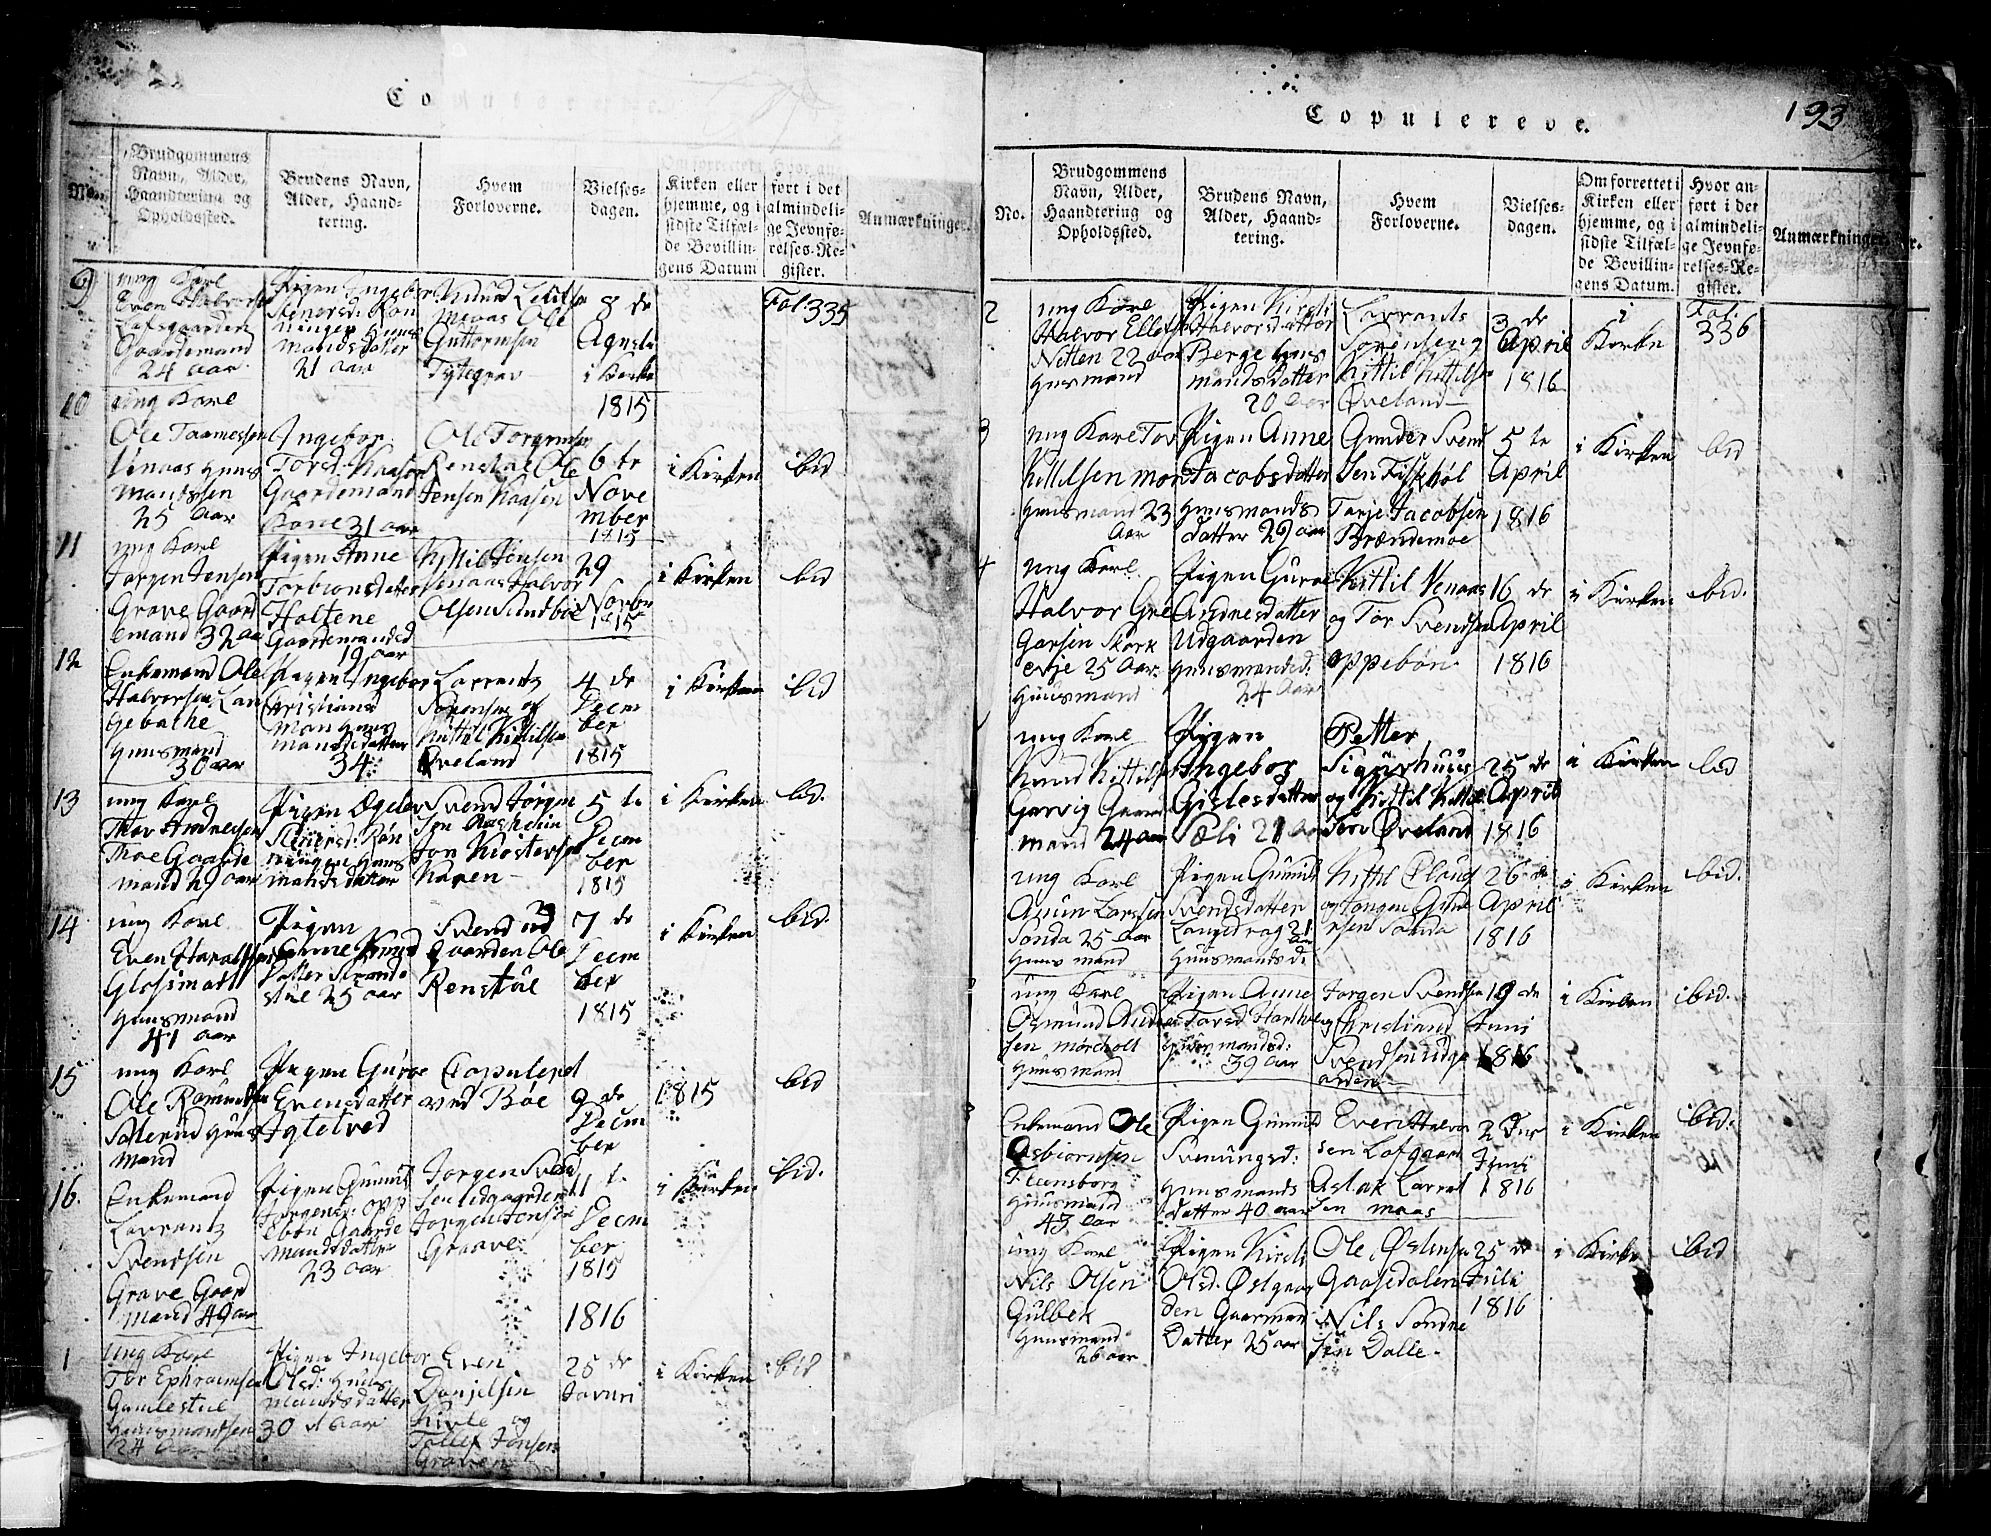 Copulerede
No.
Brudgommens
Navn, Alder,
Haandtering og
Opholdssted.
Brudens Navn,
Alder, Haand-
tering.
Hvem
Forloverne.
Vielses-
dagen.
Om forrettet i
Kirken eller
hjemme, og i
sidste Tilfæl-
de Bevillin-
gens Datum
Hvor an-
ført i det
almindeli-
ge Jevnfø-
relses-Re-
gister.
Anmærkninger.
9
ung Karl
Even Halvorsen
Lofsgaarden
Gaardemand
24 aar
Pigen Ingebor
Stenersd: Røn
ningen Huus
mandsdatter
21 aar
Ole
Guttormsen
Tytegrav
8 de
i Kirke
1815
Fol. 335
10
ung Karl
Ole Taamessen
Venaas Huus
mandssen
25 Aar
Ingebor
Torsd: Kaasen
Gaardemand
Kone 31 aar
Ole Torgrimsen
Renstøl Ole
Jensen Kaasen
6 te
Nove
mber
1815
i Kirken
ibid
11
ung Karl
Jørgen Jensen
Grave Gaard
emand 32 aar
Pigen Anne
Torbionsdatter
Holtene
Gaardemandsd
19 aar
Kittil Jensen
Venaas Halvor
Olsen Sundbøe
29
Novbr
1815
i Kirken
ibid
12
Enkemand Ole
Halvorsen Lan
gebakke
Huusmand
30 aar
Pigen Ingebor
Christians
Moen Huus
mandsdatter
34
Lorrents
Sørensen og
Kittil Kittilsen
Øveland
4 de
Decem
ber
1815
i Kirken
ibid
13
ung Karl
Thor Andresen
Thoe Gaarde
mand 29 aar
Pigen
Stenersd: Røn
ningen Huus
mandsdatter
Svend Jørgen
sen Aasheim
Jon Kiostersen
Haven
5 te
Decem
ber
1815
i Kirken
ibid.
14
ung Karl
Even Haraldsen
Glosimott
Huusmand
41 aar
Pigen
Anne Knud
datter Strand
støl 25 aar
Svend ud
gaarden Ole
Renstøl
7 de
Decem
ber
1815
i Kirken
ibid.
15
ung Karl
Ole Romundsen
Solerud Huus
mand
Pigen Guroe
Evensdatter
Igletved
Copulered
ved Bøe
9 de
Decem
ber
1815
ibid
16.
Enkemand
Lorrentz
Svendsen
Grave Gaard
mand 49 aar
Pigen Gunnild
Jørgensd: Opp
ebøn Gaarde
mandsdatter
23 aar
Jørgen Svend
sen Udgaarden
Jørgen Jensen
Graave
11 te
Decem
ber
1815
i Kirken
ibid.
1816
1
ung Karl
Tor Ephraimsen
Gamlestøl
Huusmandsen
24 Aar
Pigen Ingebor
Olsd: Huus
mandsdatter
30 aar
Even
Danjelsen
Kivle og
Tollef Jonsen
Graven
25 de
Januri
i Kirken
ibid
Copulerede.
193
No.
Brudgommens
Navn, Alder,
Haandtering og
Opholdssted.
Brudens Navn,
Alder, Haand-
tering.
Hvem
Forloverne.
Vielses-
dagen.
Om forrettet i
Kirken eller
hjemme, og i
sidste Tilfæl-
de Bevillin-
gens Datum.
Hvor an-
ført i det
almindeli-
ge Jevnfø-
relses-Re-
gister.
Anmærkninger.
2
ung Karl
Halvor Ellefsen
Netten 22 aar
Huusmand
Pigen Kirsti
Halvorsdatter
Berge Huus
mandsdatter
20 Aar
Lorrents
Sørenseng
Kittil Kittilsen
Øveland
3 de
April
1816
i
Kirke
Fol.
336
3
ung Karl Tor
Kittilsen mon
Huusmand 23
Aar
Pigen Anne
Jacobsdatter
Huusmands
datter 29 aar
Gunder Svend
sen Fiskhøl
Torje Jacobsen
Brændemoe
5 te
April
1816
i Kirken
ibid
4
ung Karl
Halvor Gre
Gorsen Skork
evje 25 Aar
Huusmand
Pigen Guroe
Andresdatter
Udgaarden
Huusmandsd:
24 Aar
Kittil Venaas
og Tor Svendsen
oppebøn
16 de
April
1816
i Kirken
ibid.
ung Karl
Knud Kittilsen
Garvig Gaard
mand 24 aar
Pigen
Ingebor
Gislesdatter
Sæli 21 Aar
Petter
Sigurhuus
og Kittil Kittil
sen Øveland
25 de
April
1816
i Kirken
ibid
ung Karl
Anun Larssen
Sonda 25 Aar
Huusmand
Pigen Gunnild
Svendsdatter
Langedrag 21
aar
Huusmandsd.
Kittil
og Jørgen Gune
rsen Sonda
26 de
April
1816
i Kirken
ibid.
ung Karl
Osmund Andre
sen Morcholt
Huusmand
Pigen Anne
Torsd
Huusmandsd:
39 Aar
Jørgen Svendsen
og Christiand
Svendsen Udga
arden
19 de
Juni
1816
i Kirken
ibid.
Enkemand Ole
Asbiornsen
Fleensborg
Huusmand
43 Aar
Pigen Gunnild
Svenungsd:
Huusmands
datter 40 aar
Even Halvor
sen Lofgaard
Aslak Larrent
sen moas
2
Juni
1816
i Kirken
ibid.
ung Karl
Nils Olsen
Gulbek
Huusmand
26 aar
Pigen Kirsti
Olsd: Østgaar
den Gaarmand
Datter 25 aar
Ole Østensen
Gaasedalen
Nils Sondre
sen Dalle
25 de
Juli
1816
i Kirke
ibid